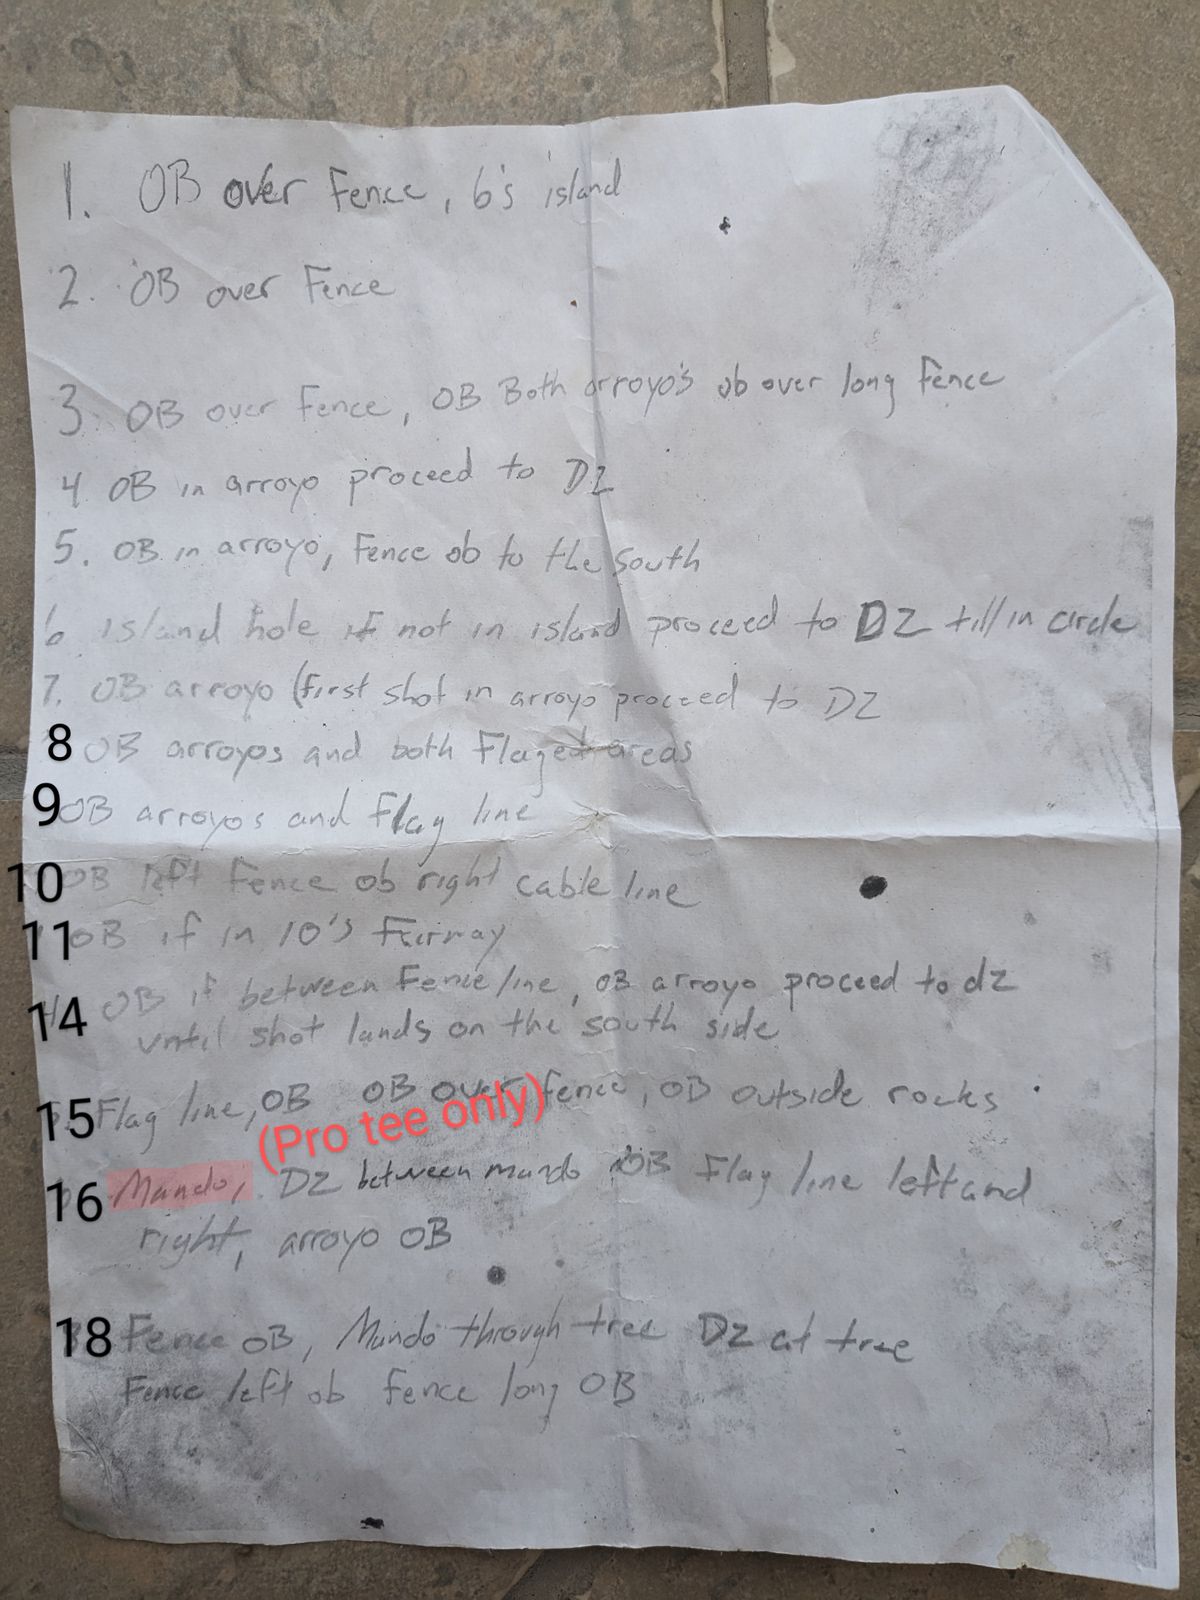 1. OB over Fence, 6's island
2. OB over Fence
3 OB over Fence, OB Both arroyo's ob over long Fence
4 OB in arroyo proceed to DZ
5. OB in arroyo, Fence ob to the South
6 island hole if not in island proceed to DZ till in circle
7. OB arroyo (first shot in arroyo proceed to DZ
8 OB arroyos and both Flaged areas
9 OB arroyos and Flag line
10 OB left Fence ob right cable line
11 OB if in 10's Fairway
14 OB if between Fence line, OB arroyo proceed to dz
until shot lands on the south side
15 Flag line, OB OB over fence, OB outside rocks
(Pro tee only)
16 Mando, DZ between mando OB Flag line left and
right, arroyo OB
18 Fence OB, Mando through tree DZ at tree
Fence left ob fence long OB